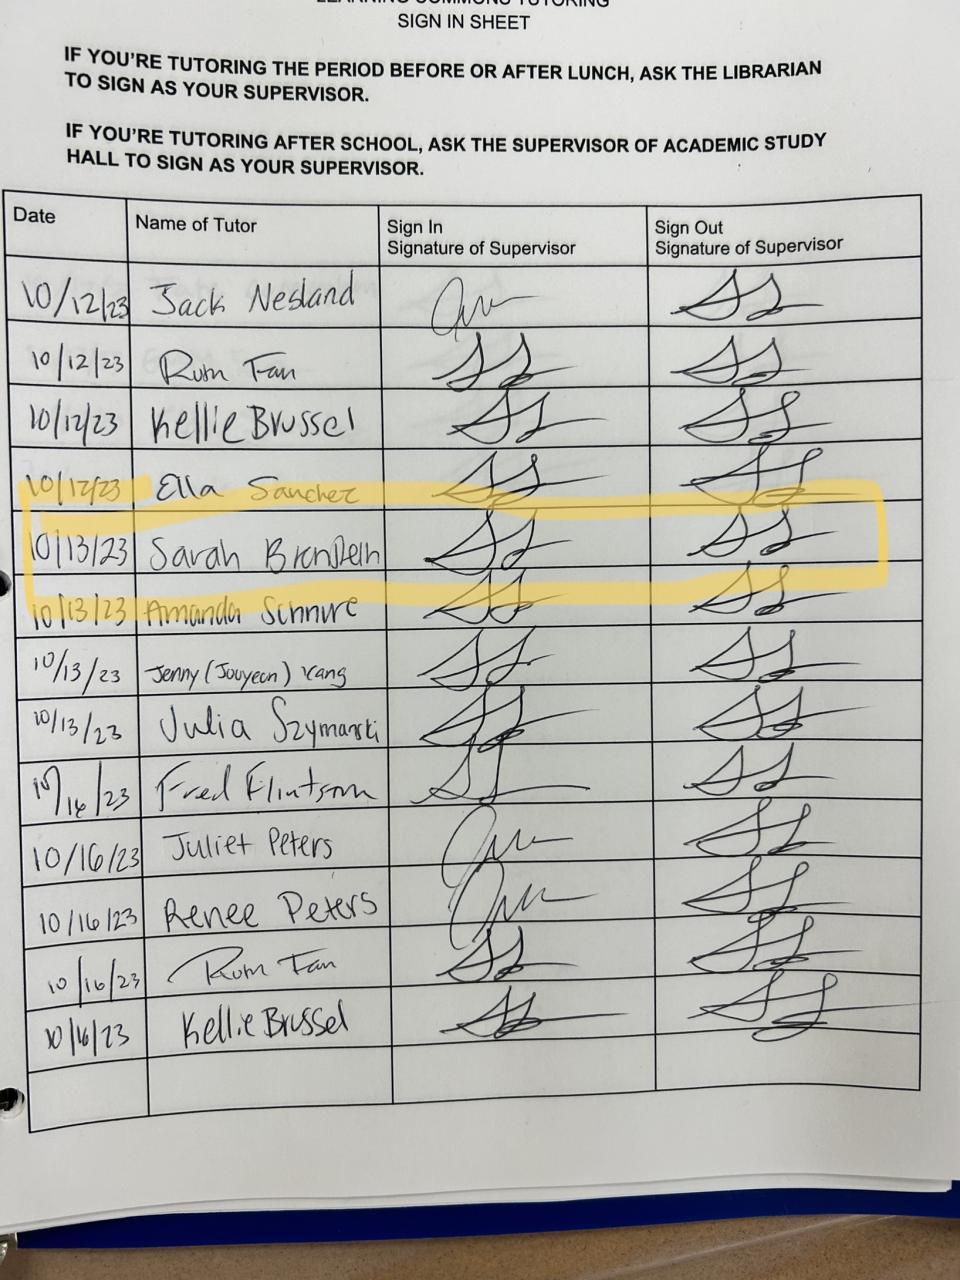 LEARNING COMMONS TUTORING
SIGN IN SHEET
IF YOU'RE TUTORING THE PERIOD BEFORE OR AFTER LUNCH, ASK THE LIBRARIAN
TO SIGN AS YOUR SUPERVISOR.
IF YOU'RE TUTORING AFTER SCHOOL, ASK THE SUPERVISOR OF ACADEMIC STUDY
HALL TO SIGN AS YOUR SUPERVISOR.
Date Name of Tutor Sign In Sign Out
Signature of Supervisor Signature of Supervisor
10/12/23 Jack Nesland
10/12/23 Rum Fan
10/12/23 Kellie Brussel
10/12/23 Ella Sanchez
10/13/23 Sarah
10/13/23 Amanda
10/13/23 Jenny (Jouyeon) Yang
10/13/23 Julia Szymanski
10/16/23 Fred
10/16/23 Juliet Peters
10/16/23 Renee Peters
10/16/23 Rum Fan
10/16/23 Kellie Brussel